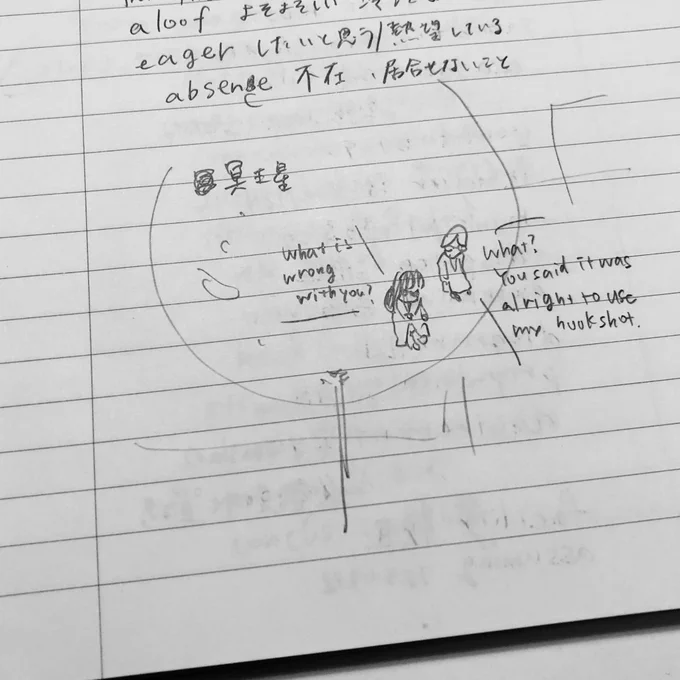 aloof よそよそしい
eager したいと思う/熱望している
absence 不在、居合せないこと
冥王星
what is
wrong
with you?
what?
You said it was
alright to use
my hookshot.